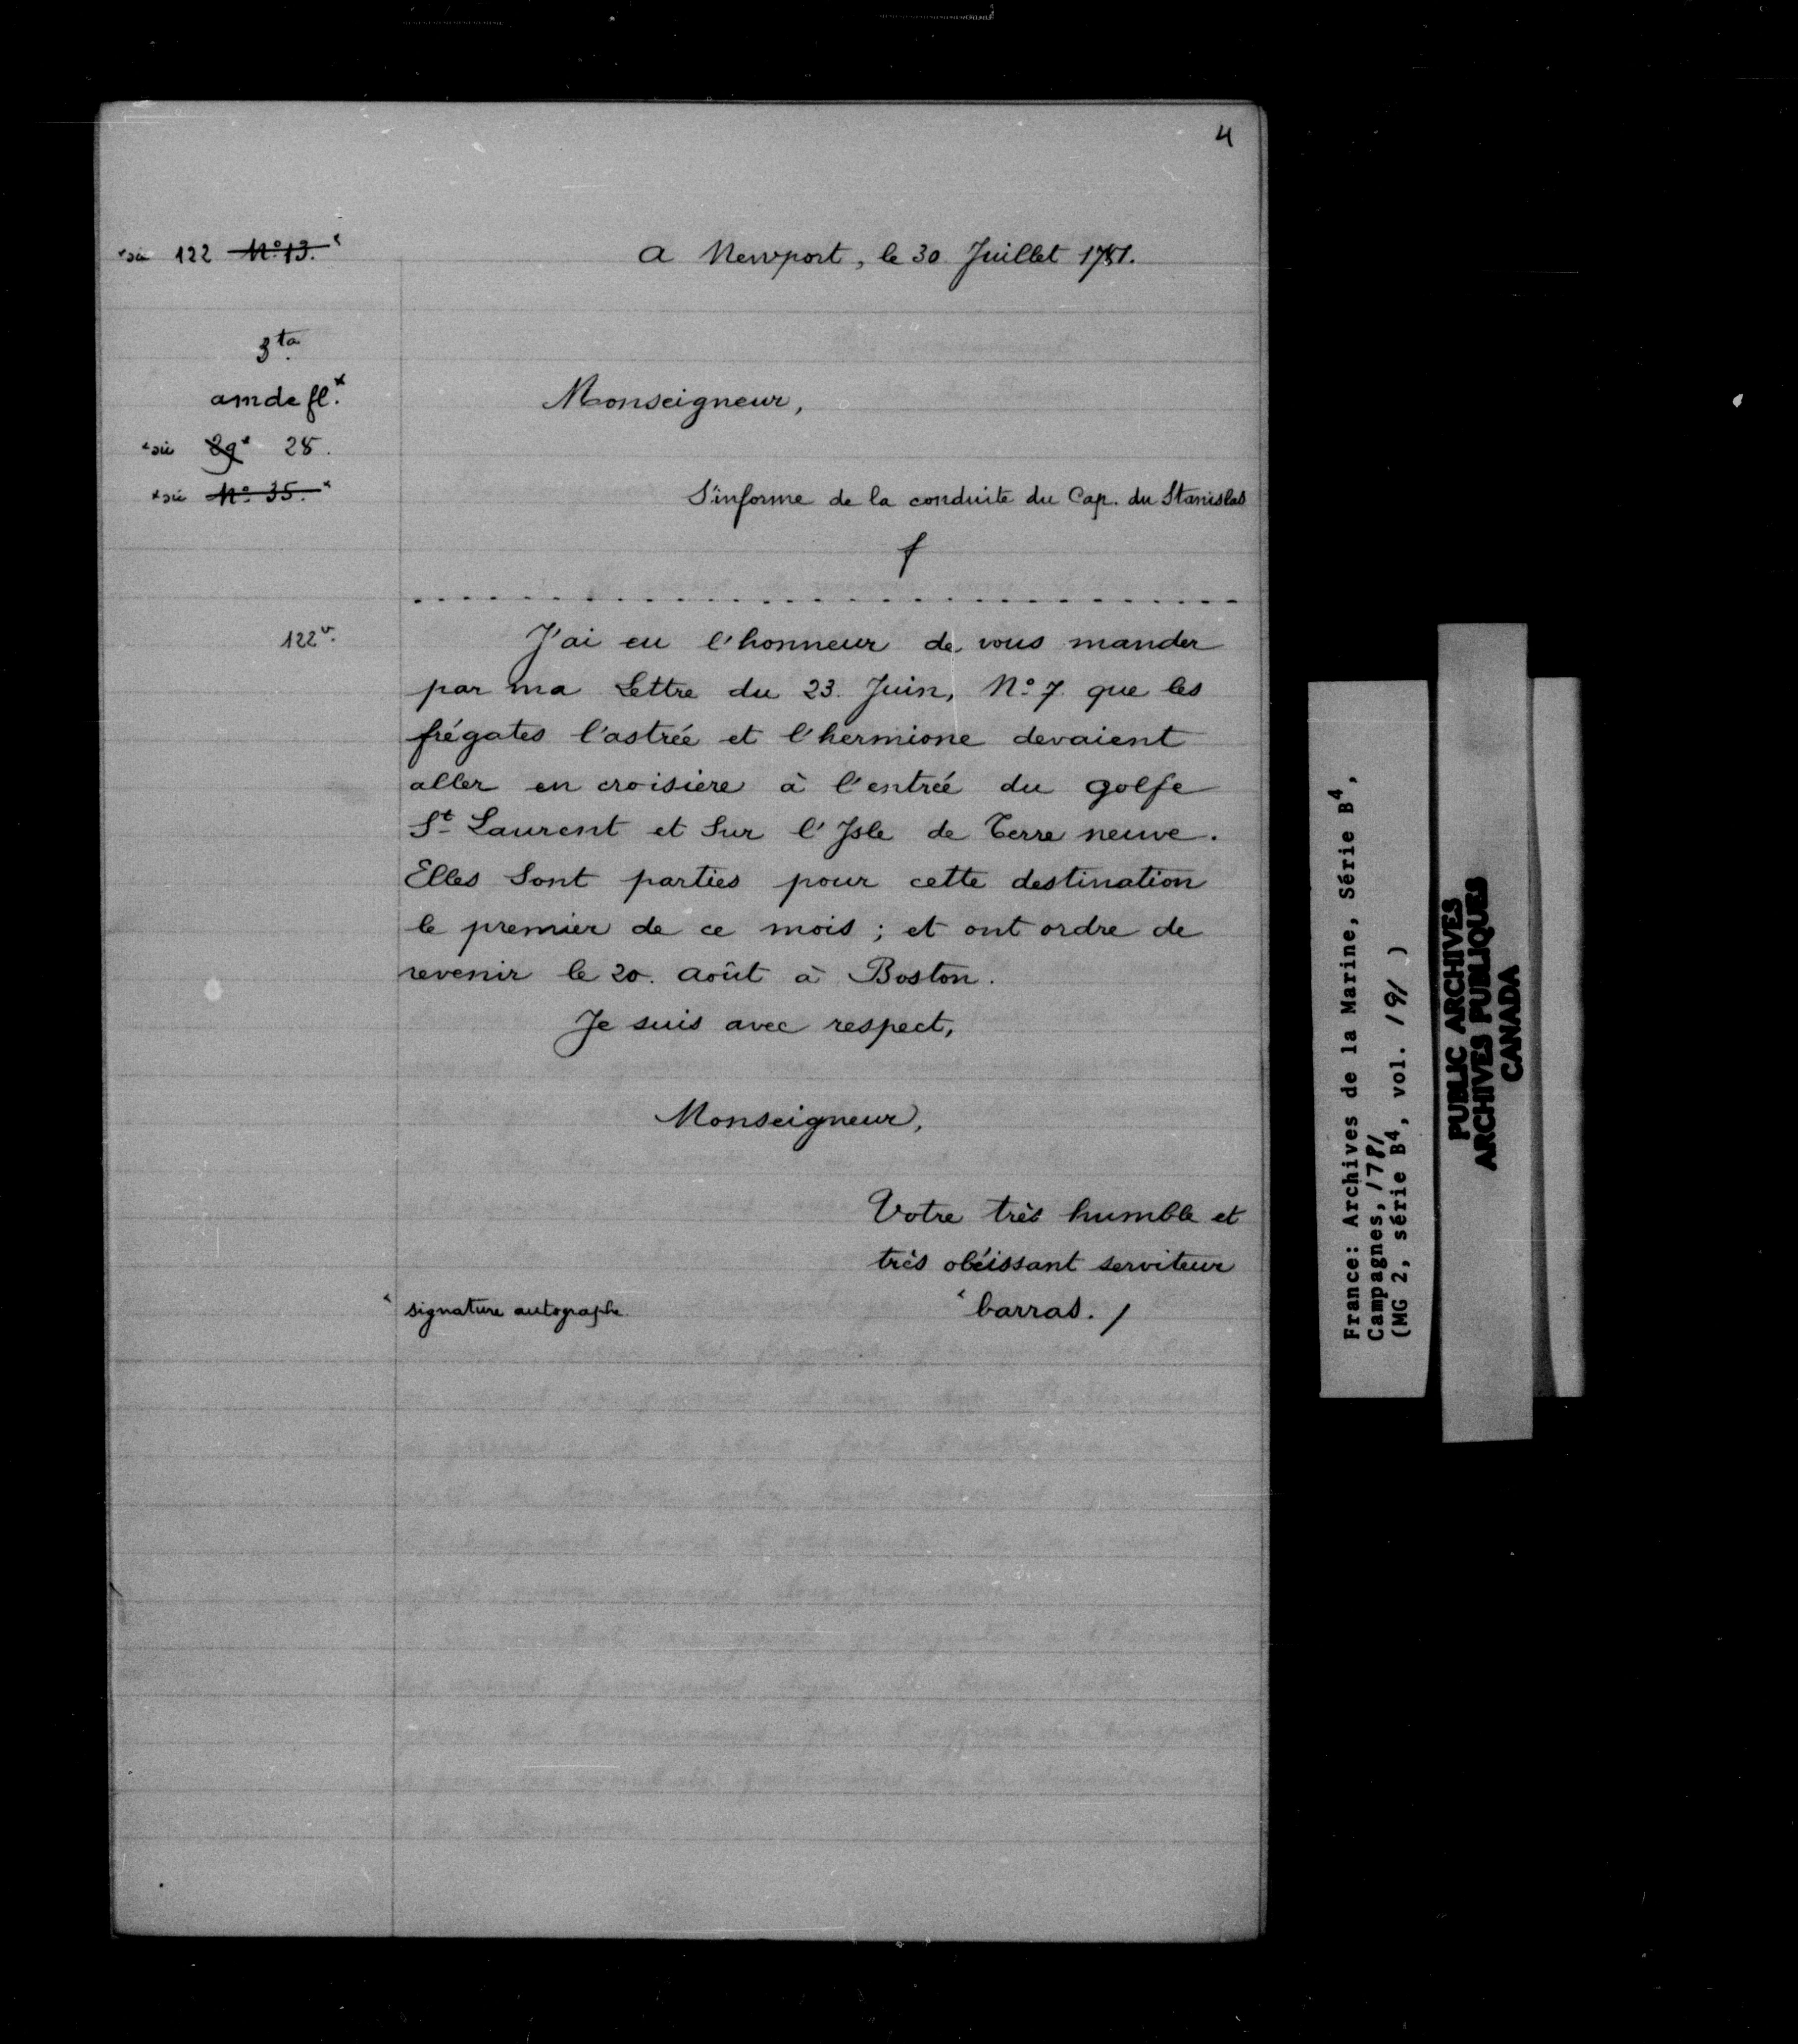 4
122 N° 13.
a Newport, le 30 Juillet 1781.
3ta
amdefl.x
Monseigneur,
89 28.
N° 35.
S'informe de la conduite du Cap. du Stanislas
f
122v.
J'ai eu l'honneur de vous mander
par ma Lettre du 23. Juin, N° 7 que les
frégates l'astrée et l'hermione devaient
aller en croisiere à l'entrée du golfe
St Laurent et Sur l'Isle de Terre neuve.
Elles Sont parties pour cette destination
le premier de ce mois ; et ont ordre de
revenir le 20. août à Boston.
Je suis avec respect,
Monseigneur,
Votre très humble et
très obéissant serviteur
x signature autographe
x barras. /
France: Archives de la Marine, Série B4,
Campagnes, 1781
(MG 2, série B4, vol. 191 )
PUBLIC ARCHIVES
ARCHIVES PUBLIQUES
CANADA